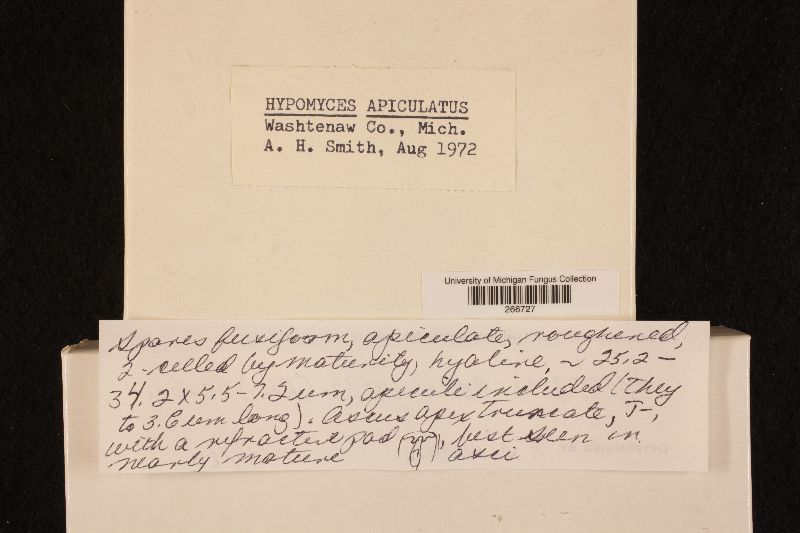 HYPOMYCES APICULATUS
Washtenaw Co., Mich.
A. H. Smith, Aug 1972
University of Michigan Fungus Collection
266727
Spores fusiform, apiculate, roughened,
2-celled by maturity, hyaline, ~ 25.2-
34.2 x 5.5-7.2 um, apiculi included (they
to 3.6 um long). Ascus apex truncate, J-,
with a refractive pad, best seen in
nearly mature asci
DETERMINED BY